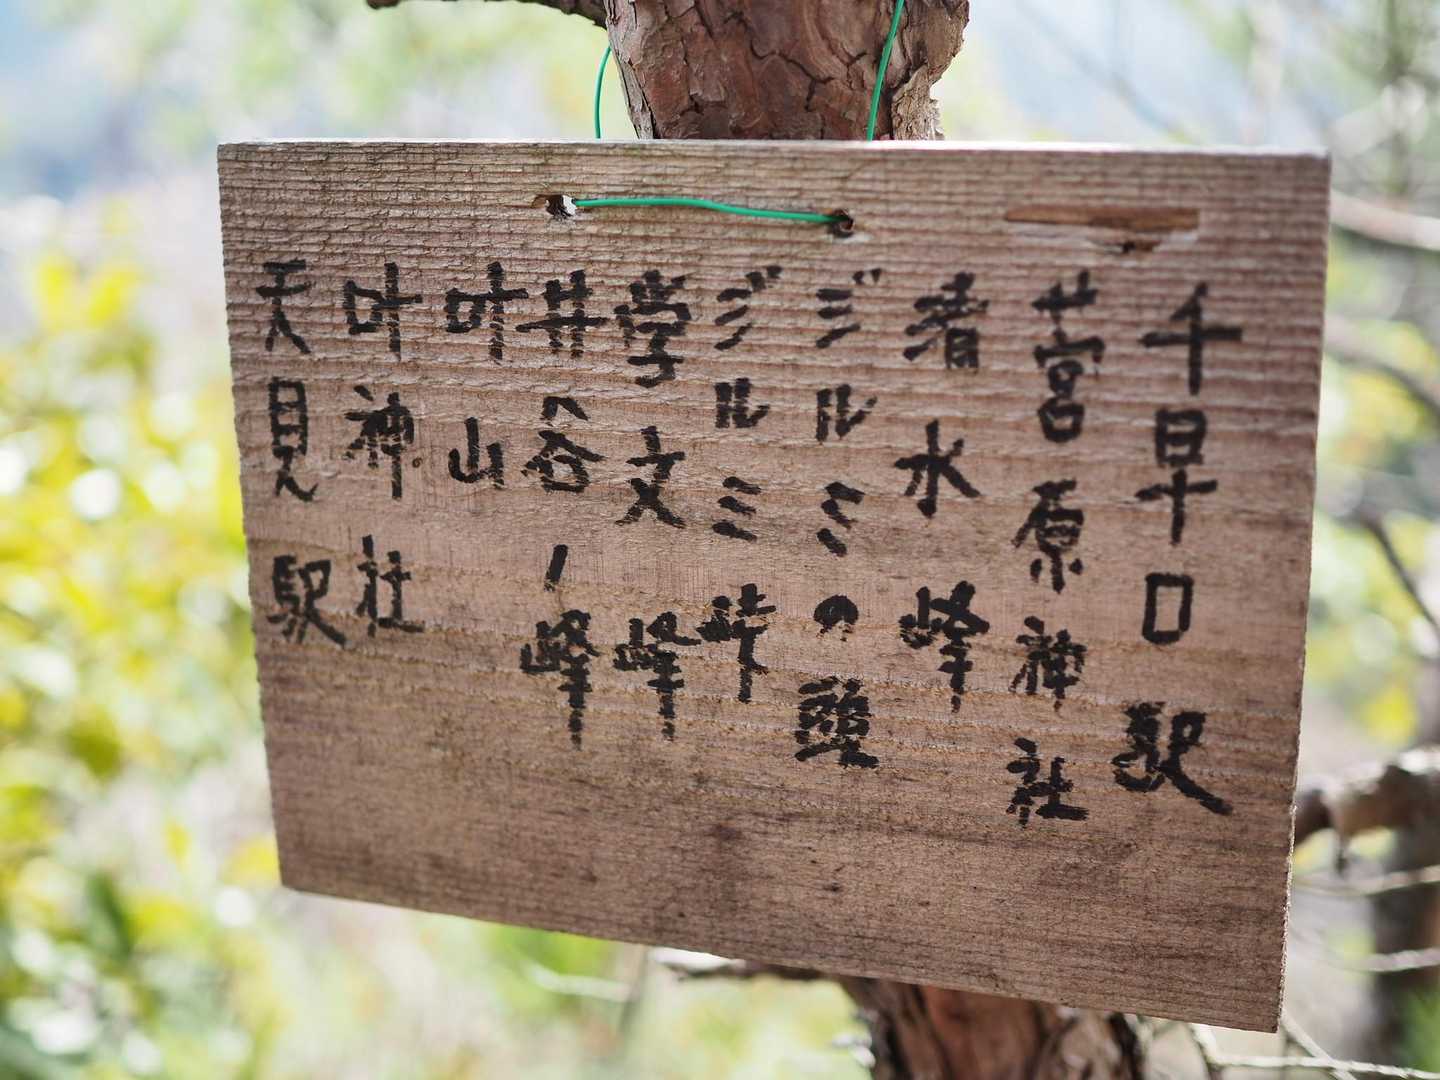 千早口駅
菅原神社
清水峰
ジルミの頭
ジルミ峠
学文峰
井谷ノ峰
叶山
叶神社
天見駅